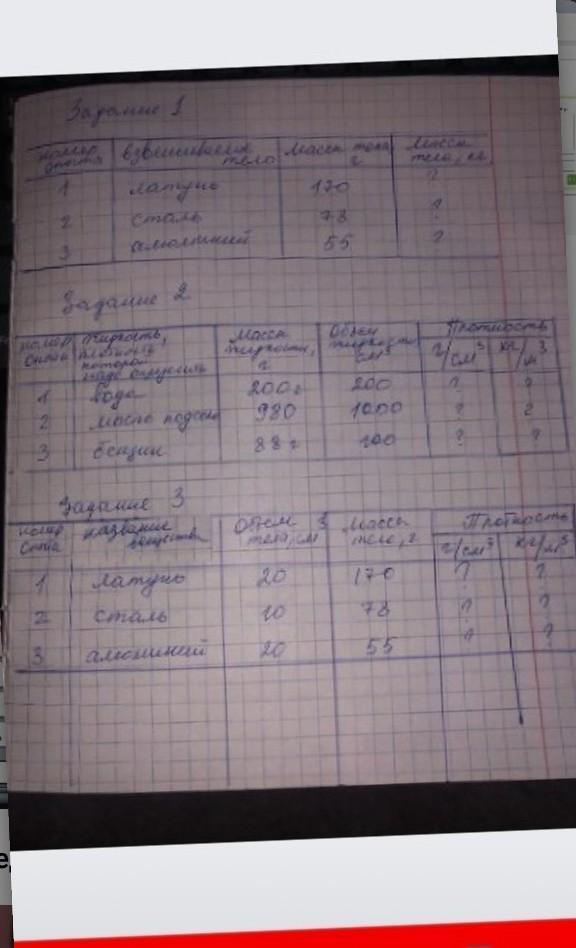 Задание 1
номер взвешиваемое Масса тела Масса
опыта тело г тела, кг
1 латунь 170 ?
2 сталь 78 ?
3 алюминий 55 ?
Задание 2
номер жидкость, Масса Объем Плотность
которой жидкости, жидкости г/см³ кг/м³
надо г см³
1 вода 200г 200 ? ?
2 масло 980 1000 ? ?
3 бензин 88г 100 ? ?
Задание 3
номер название Объем Масса Плотность
вещества тела, см³ тела, г г/см³ кг/м³
1 латунь 20 170 ? ?
2 сталь 10 78 ? ?
3 алюминий 20 55 ? ?